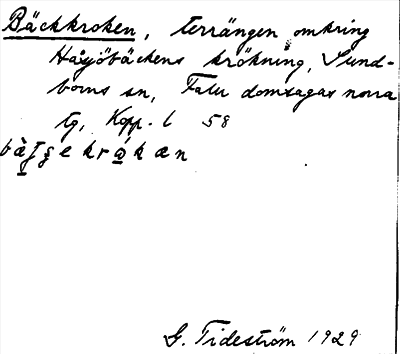 Bäckkroken, terrängen omkring
Hässjöbäckens krökning, Sund-
borns sn, Falu domsagas norra
tg, Kopp. l 58
G. Tideström 1929